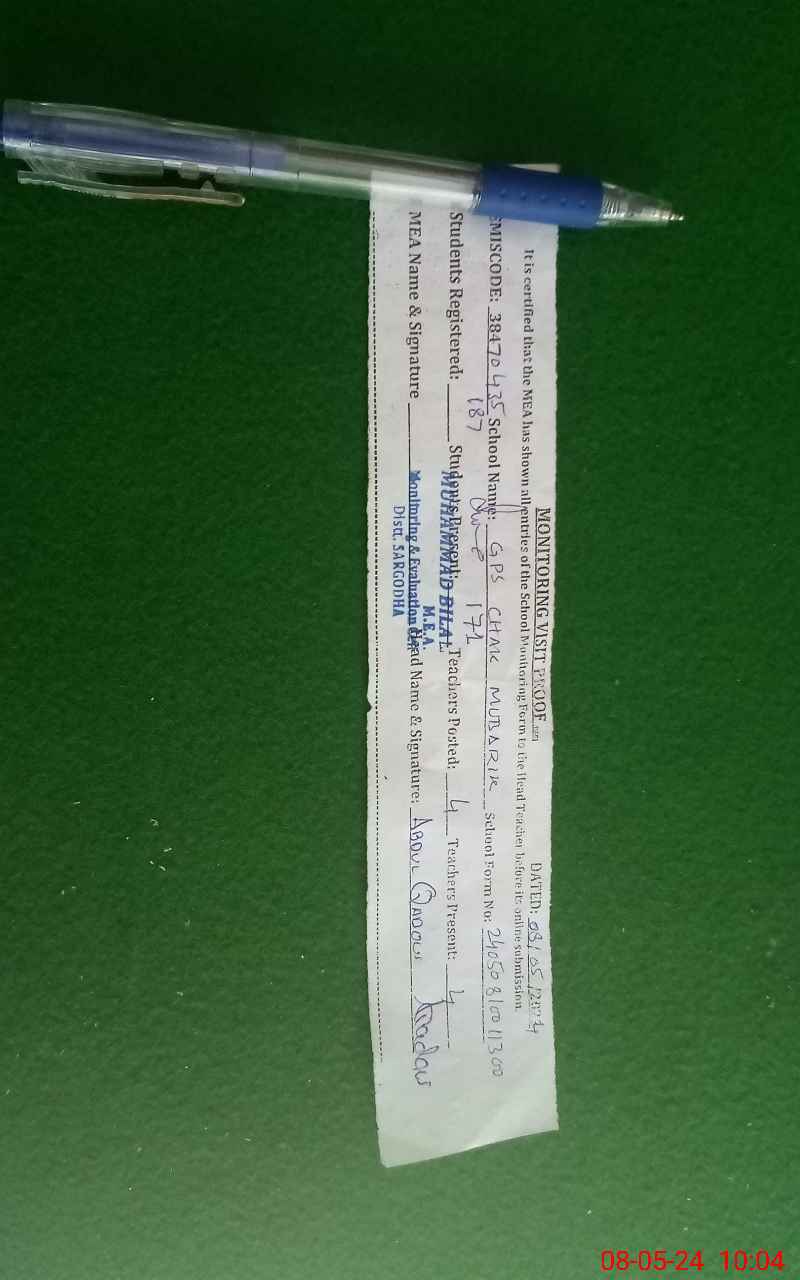 MONITORING VISIT PROOF DATED: 08/05/2024
It is certified that the MEA has shown all entries of the School Monitoring Form to the Head Teacher before its online submission.
EMISCODE: 38470435 School Name: GPS CHAK MUBARIK School Form No:
Students Registered: 187 Students Present: 171 Teachers Posted: 4 Teachers Present: 4
MUHAMMAD BILAL
M.E.A.
MEA Name & Signature Head Name & Signature: ABDUL QADOUS
Monitoring & Evaluation
Distt. SARGODHA
08-05-24 10:04